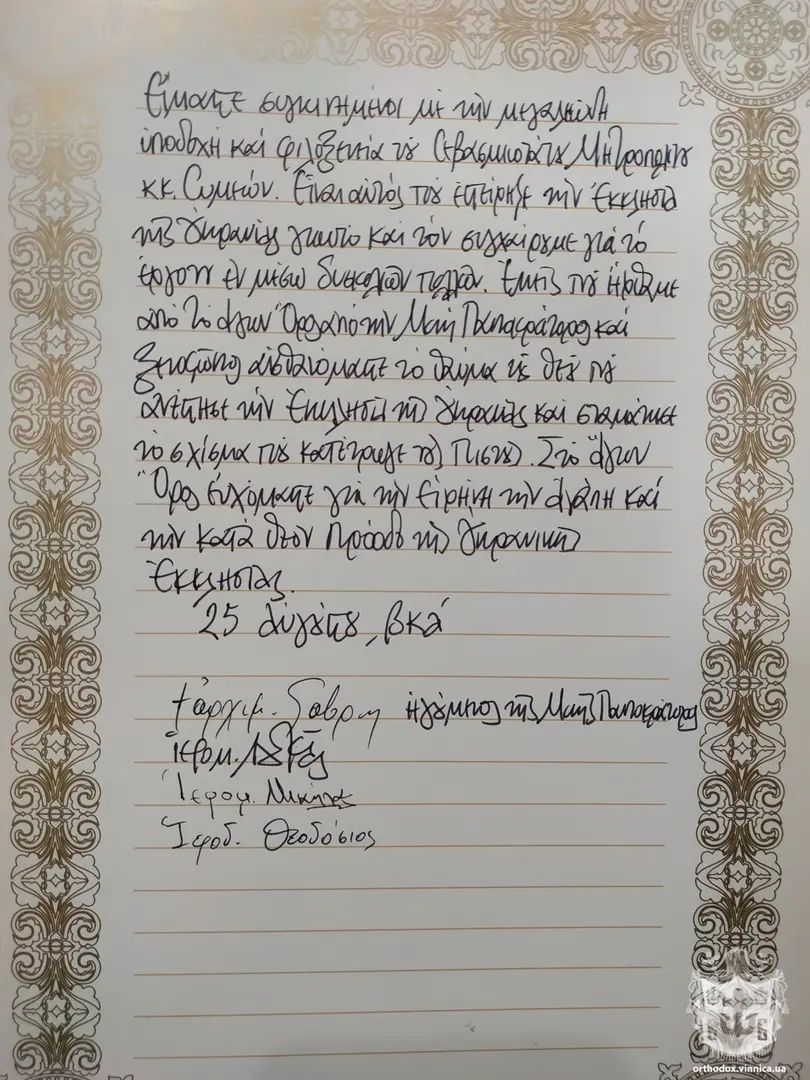 Εἴμαστε συγκινημένοι μὲ τὴν μεγαλειώδη
ὑποδοχὴ καὶ φιλοξενία τοῦ Σεβασμιωτάτου Μητροπολίτου
κκ. Συμεών. Εἶναι αὐτὸς ποὺ στήριξε τὴν Ἐκκλησία
τῆς Οὐκρανίας γι'αυτὸ καὶ τὸν συγχαίρουμε γιὰ τὸ
ἔργον ἐν μέσω δυσκολιῶν πολλῶν. Ἐμεῖς ποὺ ἤρθαμε
ἀπὸ τὸ ἅγιον Ὄρος ἀπὸ τὴν Μονὴ Παντοκράτορος καὶ
αἰσθανόμαστε τὸ θαῦμα τοῦ Θεοῦ ποὺ
τὴν Ἐκκλησία τῆς Οὐκρανίας καὶ σταμάτησε
τὸ σχίσμα ποὺ τοὺς Πιστούς. Στὸ ἅγιον
Ὄρος εὐχόμαστε γιὰ τὴν εἰρήνη τὴν ἀγάπη καὶ
τὴν κατὰ Θεὸν πρόοδο τῆς Οὐκρανικῆς
Ἐκκλησίας.
25 αὐγούστου, βκα΄
† ἀρχιμ. Γαβριὴλ ἡγούμενος τῆς Μονῆς Παντοκράτορος
Ἱερομ.
Ἱερομ. Νικήτας
Ἱεροδ. Θεοδόσιος
orthodox.vinnica.ua